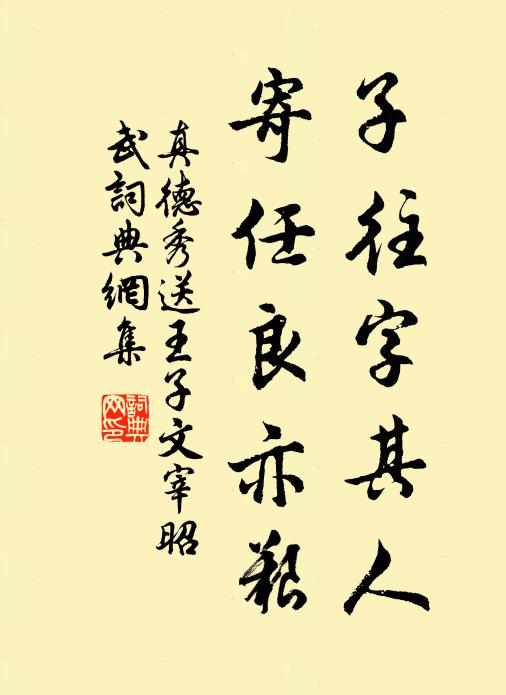 子往字其人
寄任良亦艱
真德秀送王子文宰昭
武詞典網集
詞典网印